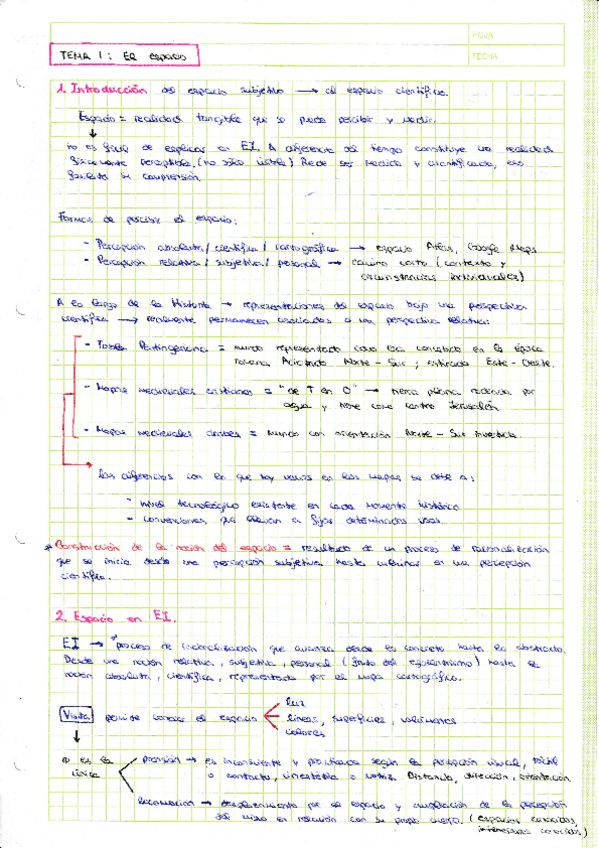 HOJA
FECHA
TEMA 1: El espacio
1. Introducción del espacio subjetivo → al espacio científico.
Espacio = realidad tangible que se puede percibir y medir.
no es fácil de explicar en EI. A diferencia del tiempo constituye una realidad
físicamente perceptible, (no sólo visible) Puede ser medida y cuantificada, eso
facilita su comprensión.
Formas de percibir el espacio:
- Percepción absoluta / científica / cartográfica → espacio Atlas, Google Maps
- Percepción relativa / subjetiva / personal → camino corto (contexto y
circunstancias individuales)
A lo largo de la Historia → representaciones del espacio bajo una perspectiva
científica → realmente permanecen asociadas a una perspectiva relativa:
- Tabla Peutingeriana = mundo representado como era conocido en la época
romana, Achatado Norte - Sur; estirado Este - Oeste.
- Mapas medievales cristianos = "de T en O" → tierra plana rodeada por
agua y tiene como centro Jerusalén
- Mapas medievales árabes = Mundo con orientación Norte - Sur invertida.
Las diferencias con lo que hoy vemos en los mapas se debe a:
- nivel tecnológico existente en cada momento histórico
- convenciones que llevan a fijar determinados usos.
* Construcción de la noción del espacio = resultado de un proceso de racionalización
que se inicia desde una percepción subjetiva hasta culminar en una percepción
científica.
2. Espacio en EI.
EI → proceso de que avanza desde lo concreto hasta lo abstracto.
Desde una noción relativa, subjetiva, personal (fruto del egocentrismo) hasta la
noción absoluta, científica, representada por el mapa cartográfico.
luz
Vista permite conocer el espacio líneas, superficies, volúmenes
colores
no es la prensión → es inconsciente y practicada según la percepción visual, táctil
única o contacto, cinestésica o motriz. Distancia, dirección, orientación.
locomoción → desplazamiento por el espacio y ampliación de la percepción
del mismo en relación con su propio cuerpo. (espacios conocidos,
conocidos)